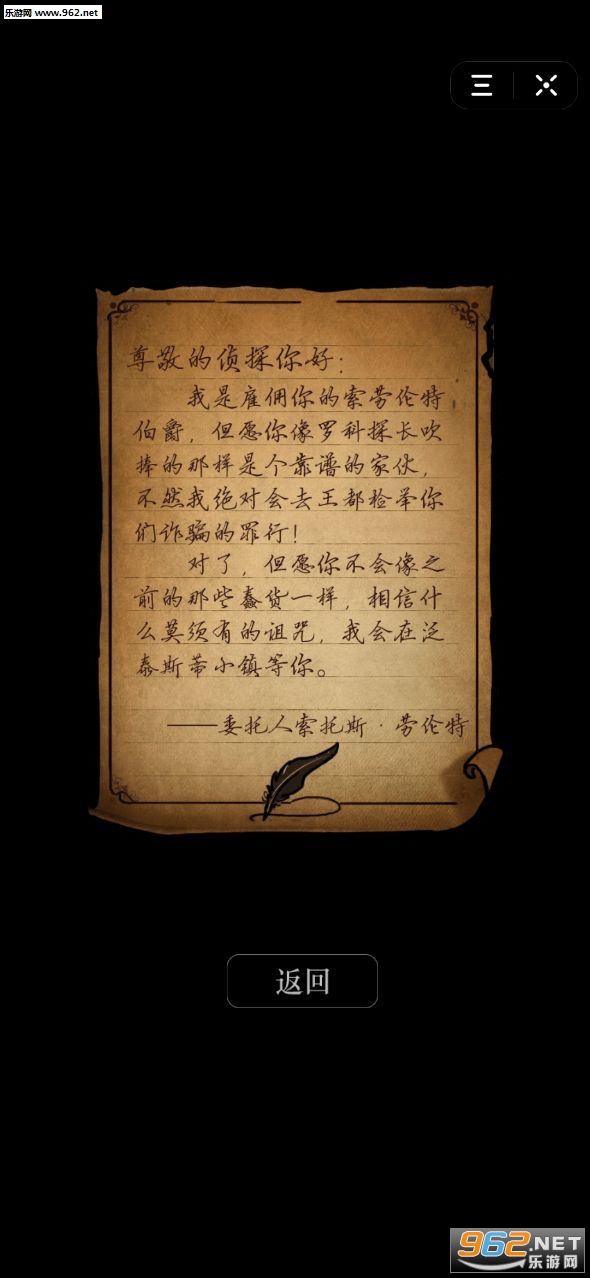 乐游网 www.962.net
尊敬的侦探你好：
我是雇佣你的索劳伦特
伯爵，但愿你像罗科探长吹
捧的那样是个靠谱的家伙，
不然我绝对会去王都检举你
们诈骗的罪行！
对了，但愿你不会像之
前的那些蠢货一样，相信什
么莫须有的诅咒，我会在泛
泰斯蒂小镇等你。
——委托人索托斯·劳伦特
返回
962.NET
乐游网